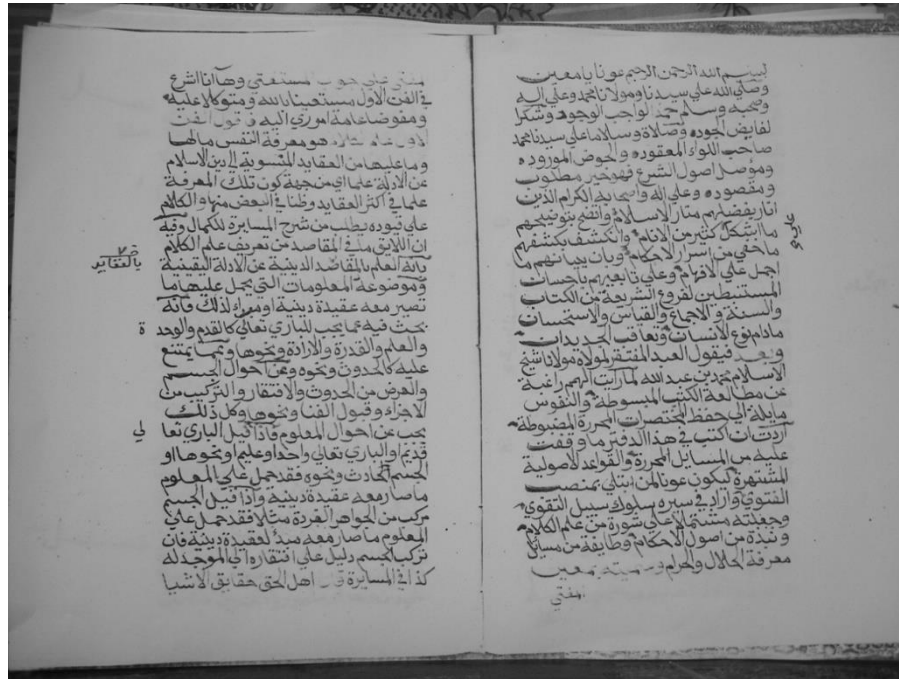 بسم الله الرحمن الرحيم عونا يا معين
وصلي الله علي سيدنا ومولانا محمد وعلي اله
وصحبه وسلم حمدا لواجب الوجود وشكرا
لفايض الجوده وصلاة وسلاما علي سيدنا محمد
صاحب اللواء المعقوده والحوض الموروده
وموصل اصول الشرع فهو خير مطلوب
ومقصوده وعلي اله واصحابه الكرام الذين
انار بفضلهم منار الاسلام واتضح بتوضيحهم
ما اشكل كثير من الانام وانكشف بكشفهم
ما خفي من اسرار الاحكام وبان ببيانهم ما
اجمل علي الافهام وعلي تابعيهم باحسان
المستنبطين لفروع الشريعة من الكتاب
والسنة والاجماع والقياس والاستحسان
مادام نوع الانسان وتعاقب الجديدان
وبعد فيقول العبد المفتقر لمولاه مولانا شيخ
الاسلام محمد بن عبد الله لما رايت الهمم راغبة
عن مطالعة الكتب المبسوطة والنفوس
مايلة الي حفظ المختصرات المحررة المضبوطة
اردت ان اكتب في هذا الدفتر ما وقفت
عليه من المسايل المحررة والقواعد الاصولية
المشتهرة ليكون عونا لمن ابتلي بمنصب
الفتوي واراد في سيره سلوك سبيل التقوي
وجعلته مشتملا علي شورة من علم الكلام
ونبذة من اصول الاحكام وطايفة من مسايل
معرفة الحلال والحرام وسميته بمعين
المفتي
المفتي علي جواب المستفتي وها انا اشرع
في الفن الاول مستعينا بالله ومتوكلا عليه
ومفوضا عامة اموري اليه فاقول الفن
الاول علم الكلام هو معرفة النفس مالها
وما عليها من العقايد المنسوبة الي دين الاسلام
عن الادلة علما اي من جهة كون تلك المعرفة
علما في اكثر العقايد وظنا في البعض منها والكلام
علي قيوده يطلب من شرح المسايرة للكمال وفيه
ان اللايق ما في المقاصد من تعريف علم الكلام
بانه العلم بالمقاصد الدينية عن الادلة اليقينية
بالعقايد
وموضوعه المعلومات التي يحمل عليها ما
تصير معه عقيدة دينية او مبدا لذلك فانه
يحث فيه عما يجب للباري تعالي كالقدم والوحد
ة
والعلم والقدرة والارادة ونحوها وعما يمتنع
عليه كالحدوث ونحوه وعن احوال الجسم
والعرض من الحدوث والافتقار والتركيب من
الاجزاء وقبول الفنا ونحوها وكل ذلك
يحب عن احوال المعلوم فاذا قيل الباري تعا
لي
قديم والباري تعالي واحد او عليم او نحوها او
الجسم الحادث ونحوه فقد حمل علي المعلوم
ما صار معه عقيدة دينية واذا قيل الجسم
مركب من الجواهر الفردة مثلا فقد حمل علي
المعلوم ما صار معه مبدأ لعقيدة دينية فان
تركب الجسم دليل علي افتقاره الي الموجد له
كذا في المسايرة قال اهل الحق حقايق الاشيا